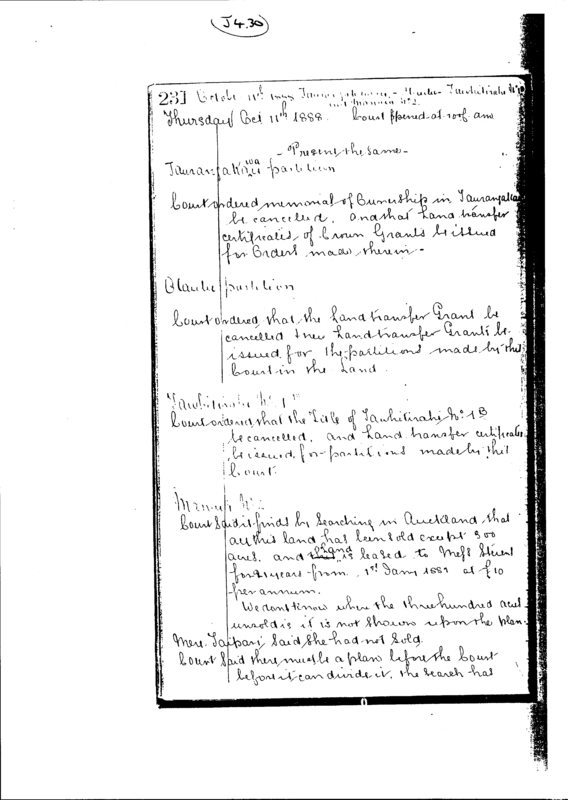 J4.30
231 October 11th 1888
Thursday Oct 11th 1888. Court opened at 10 of. am
- Present the same -
partition
Court ordered memorial of Ownership in
be cancelled. and that Land transfer
certificates, of Crown Grants be issued
for Orders made therein -
partition
Court ordered that the Land transfer Grant be
cancelled & new Land transfer Grants be
issued for the partitions made by this
Court in the Land.
Court ordered that the Title of Tawhitirahi No. 1B
be cancelled. and Land transfer certificates
be issued for partitions made by this
Court.
Court said it finds by searching in Auckland that
all this land has been sold except 300
acres. and is leased to Messrs
for 21 years from 1st Jany 1881 at £10
per annum.
We dont know where the three hundred acres
unsold is it is not shown upon the plan.
Mere Taipari said she had not sold.
Court said there must be a plan before the Court
before it can divide it. the search has